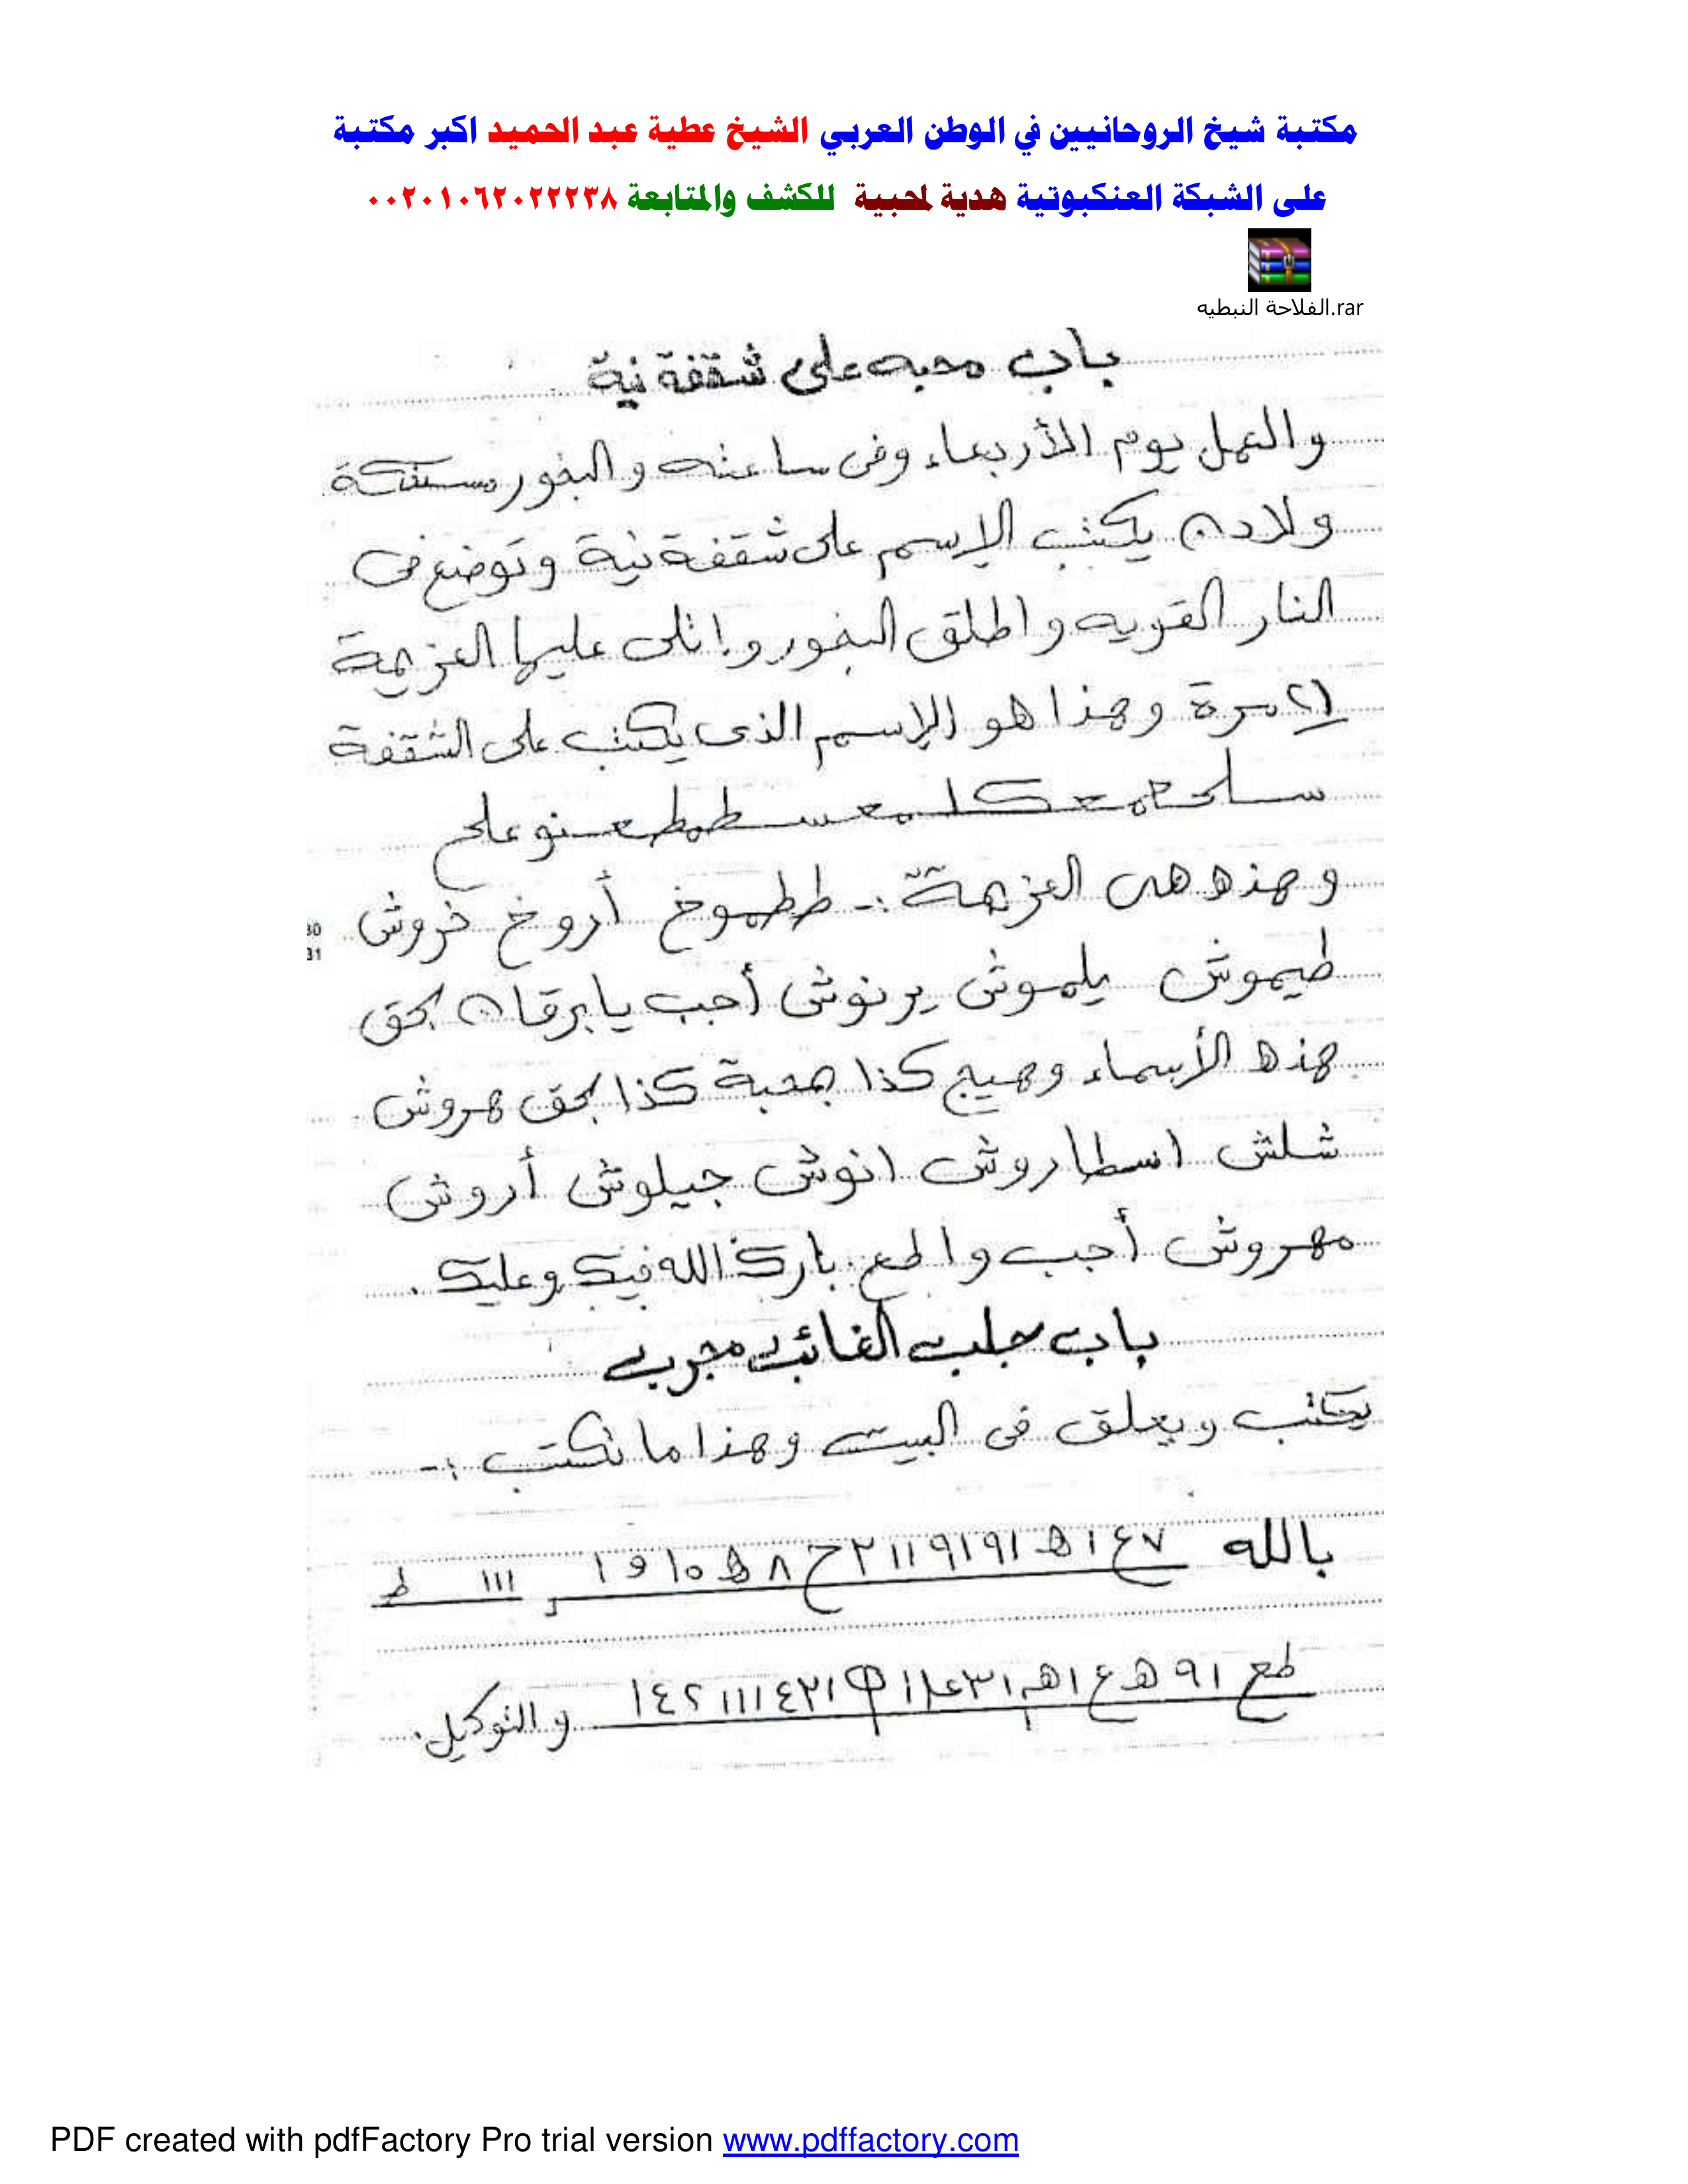 مكتبة شيخ الروحانيين في الوطن العربي الشيخ عطية عبد الحميد اكبر مكتبة
على الشبكة العنكبوتية هدية لمحبية للكشف والمتابعة ٠٠٢٠١٠٦٢٠٢٢٢٣٨
الفلاحة النبطيه.rar
باب محبه على شقفة نية
والعمل يوم الأربعاء وفى ساعته والبخور مستكة
ولادن يكتب الإسم على شقفة نية وتوضع فى
النار القويه واطلق البخور واتلى عليها العزيمة
٢١ مرة وهذا هو الإسم الذى يكتب على الشقفة
وهذه هى العزيمة :- ططموخ أروخ خروش
30
31
طيموش يلموش يرنوش أجب يا برقان بحق
هذه الأسماء وهيج كذا بمحبة كذا بحق هروش
شلش اسطاروش انوش جيلوش أروش
مهروش أجب واطع بارك الله فيك وعليك .
باب جلب الغائب مجرب
يكتب ويعلق فى البيت وهذا ما تكتب :-
بالله ٧ ع ١ ھ ١٩١٩١١٢ ح ٨ ھ ١٥ و ١ ااا ط
والتوكيل .
PDF created with pdfFactory Pro trial version www.pdffactory.com